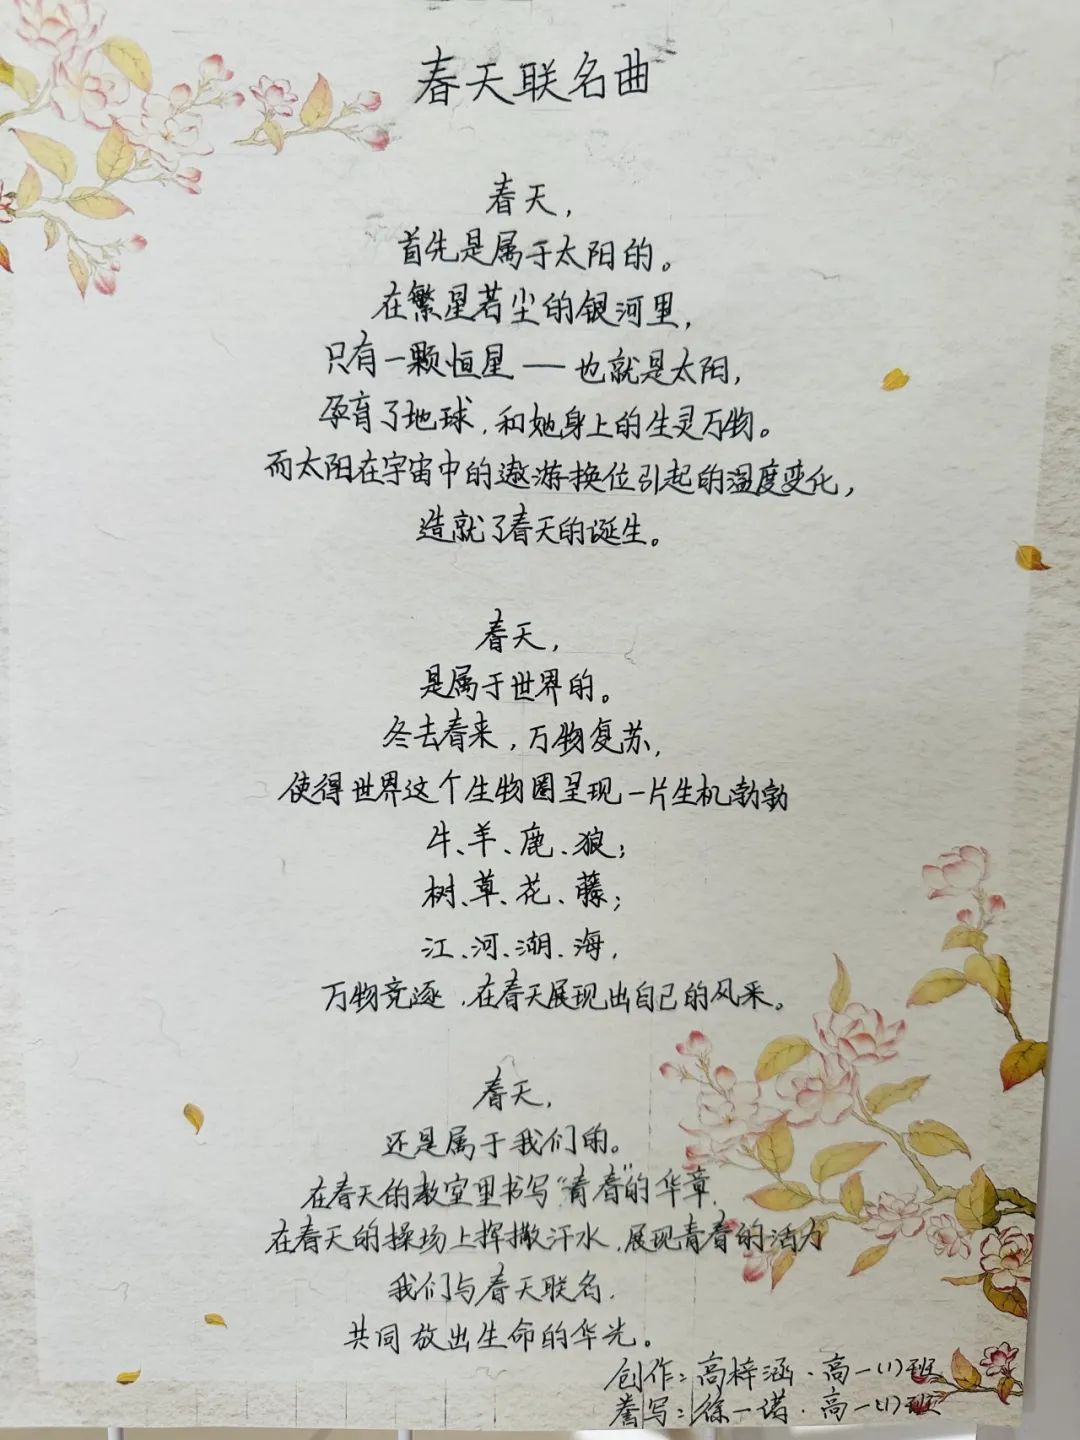 春天联名曲
春天，
首先是属于太阳的。
在繁星若尘的银河里，
只有一颗恒星——也就是太阳，
孕育了地球，和她身上的生灵万物。
而太阳在宇宙中的遨游换位引起的温度变化，
造就了春天的诞生。
春天，
是属于世界的。
冬去春来，万物复苏，
使得世界这个生物圈呈现一片生机勃勃
牛、羊、鹿、狼；
树、草、花、藤；
江、河、湖、海，
万物竞逐，在春天展现出自己的风采。
春天，
还是属于我们的。
在春天的教室里书写“青春”的华章，
在春天的操场上挥撒汗水，展现青春的活力
我们与春天联名，
共同放出生命的华光。
创作：高梓涵·高一(1)班
誊写：徐一诺·高一(1)班